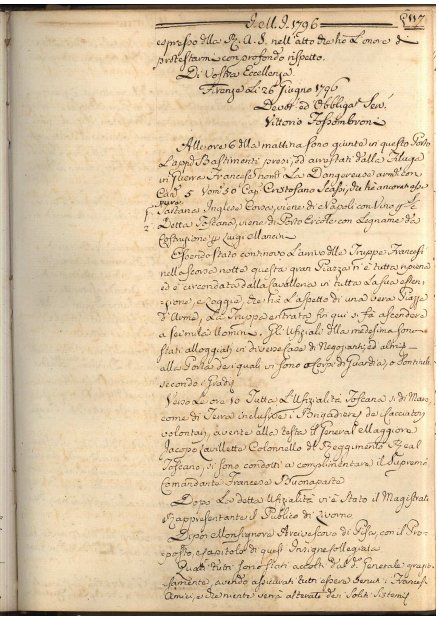 Dell. I. 1796
117.
espresso dlla R. A. S. nell'atto che hò l'onore di
protestarmi con profondo rispetto.
Di Vostra Eccellenza
Firenze Li 26 Giugno 1796
Devot.mo ed Obbligat. Serv.
Vittorio Fossombroni
Alle ore 6 dlla mattina sono giunte in questo Porto
L'appd. Bastimenti presi, ed arrestati dalla Filuga
in Guerra Francese nom.ta La Dangereuse armata con
Can. 5 Vom. 50 Cap. Cristofano Scassi, che hà ancora
pure
1. Tartana Inglese Corsa, viene di Napoli con Vino
2. Detta Toscana, viene di Porto Ercole con Legname da
Costruzione Luigi Mancini
Essendo stato continovo L'arrivo dlle Truppe Francesi
nell'scorsa notte questa gran Piazza n'è tutta ripiena
ed è circondata dalla Cavalleria in tutta la sua esten-
zione, e Loggie, che hà L'aspetto di una vera Piazza
d'Armi. La Truppa entrata fin qui si fà ascendere
a seimila Uomini. Gli Ufiziali dlla medesima sono
stati alloggiati in diverse Case di Negozianti, ed altri
alla Porta de i quali vi sono Corpi di Guardia, o Sentinelle
secondo i Gradi
Verso Le ore 10 Tutta L'Ufizialità Toscana si di Mare,
come di Terra inclusive i Brigadieri de Cacciatori
volontari, avente alla testa il General Maggiore
Jacopo Lavillette Colonnello d. Reggimento Real
Toscano, si sono condotti a complimentare il Supremo
Comandante Francese Buonaparte
Dopo La detta Ufizialità vi è Stato il Magistrato
Rappresentante il Pubblico di Livorno
Dipoi Monsignore Arcivescovo di Pisa, con il Pro-
posto, e Capitolo di quest'Insigne Collegiata
Quali tutti sono stati accolti dal d. Generale grazio-
samente, avendo assicurati tutti essere venuti i Francesi
Amici, e che niente verrà alterato dei Soliti Sistemi